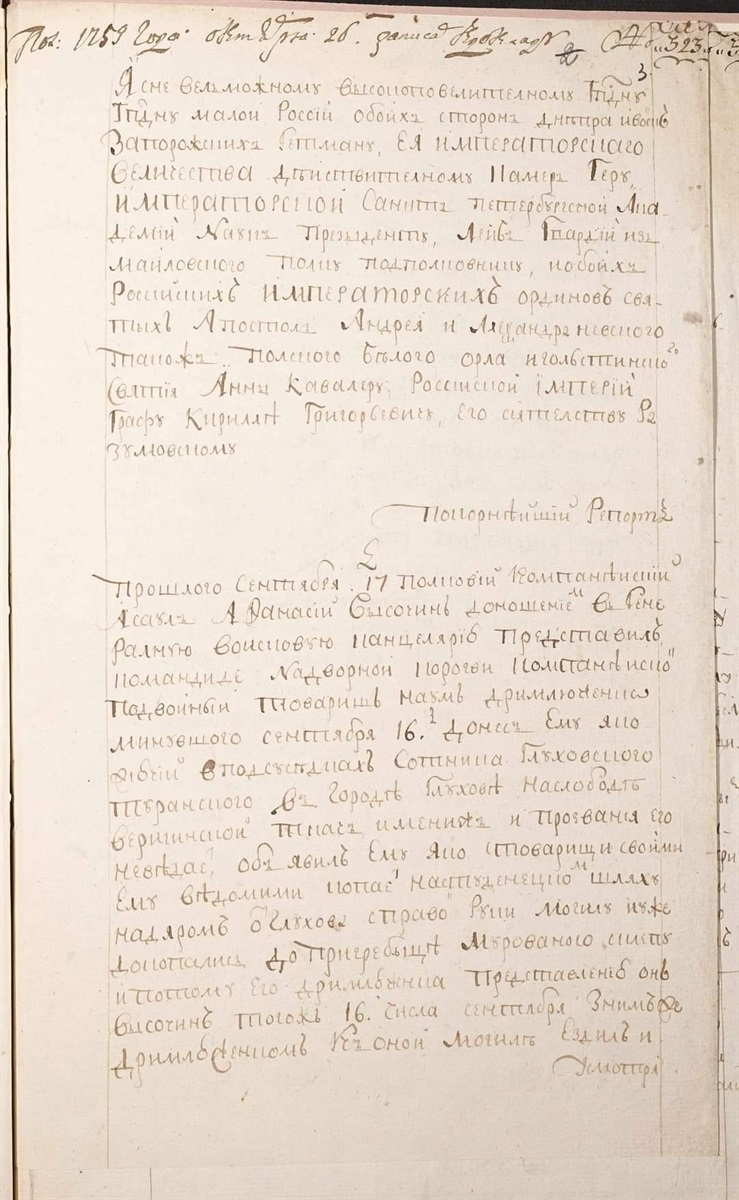 Пол: 1759 Года: октября: 26. записа Кдокладу
№ 323
3
Ясне велможному высокоповелителному Гпдну
Гпдну малой Россiй обоихъ сторонъ днепра и войскъ
Запорожскихъ Гетману, ЕЯ ИМПЕРАТОРСКАГО
ВЕЛИЧЕСТВА действителному Камеръ Геру,
ИМПЕРАТОРСКОЙ Санктъ петербургской Ака-
демiй Наукъ Президенту, Лейбъ Гвардiй из-
маиловского полку подполковнику, и обоихъ
Россiйскихъ ИМПЕРАТОРСКИХЪ ординовъ свя-
тыхъ Апостола Андрея и Александра невского
такожъ полского белого орла и голстинско го
Святiя Анны Кавалеру, Россiйской iмперiй
Графу Кирилле Григорьевичу, его сиятелству Ра
зумовскому
Покорнейшiй Репортъ
Прошлого Сентября 17 полковiй Компанейскiй
Асаулъ Афанасiй Высочинъ доношением в Гене
ралную воисковую канцелярiю представилъ
командиде Надворной корогви Компанейско
подвойнiй товаришъ наумъ дримлюченко
минувшого сентября 16. г донесъ Ему яко
живчiй в подсуседкахъ Сотника Глуховского
туранского въ городе Глухове на слободе
веригинской ткачъ, имени жъ и прозвания его
неведае, объявилъ Ему яко с товарищи своими
Ему ведомими копае на студенецко м шляху
над яромъ б Глухова справо руки могилу и уже
докопались до пригребище мурованого склепу
и потому Его дримлюченка представленiю онъ
высочинъ того жъ 16. числа сентября З нимъ же
дримлюченкомъ Къ оной могиле Ездилъ и
Усмотре